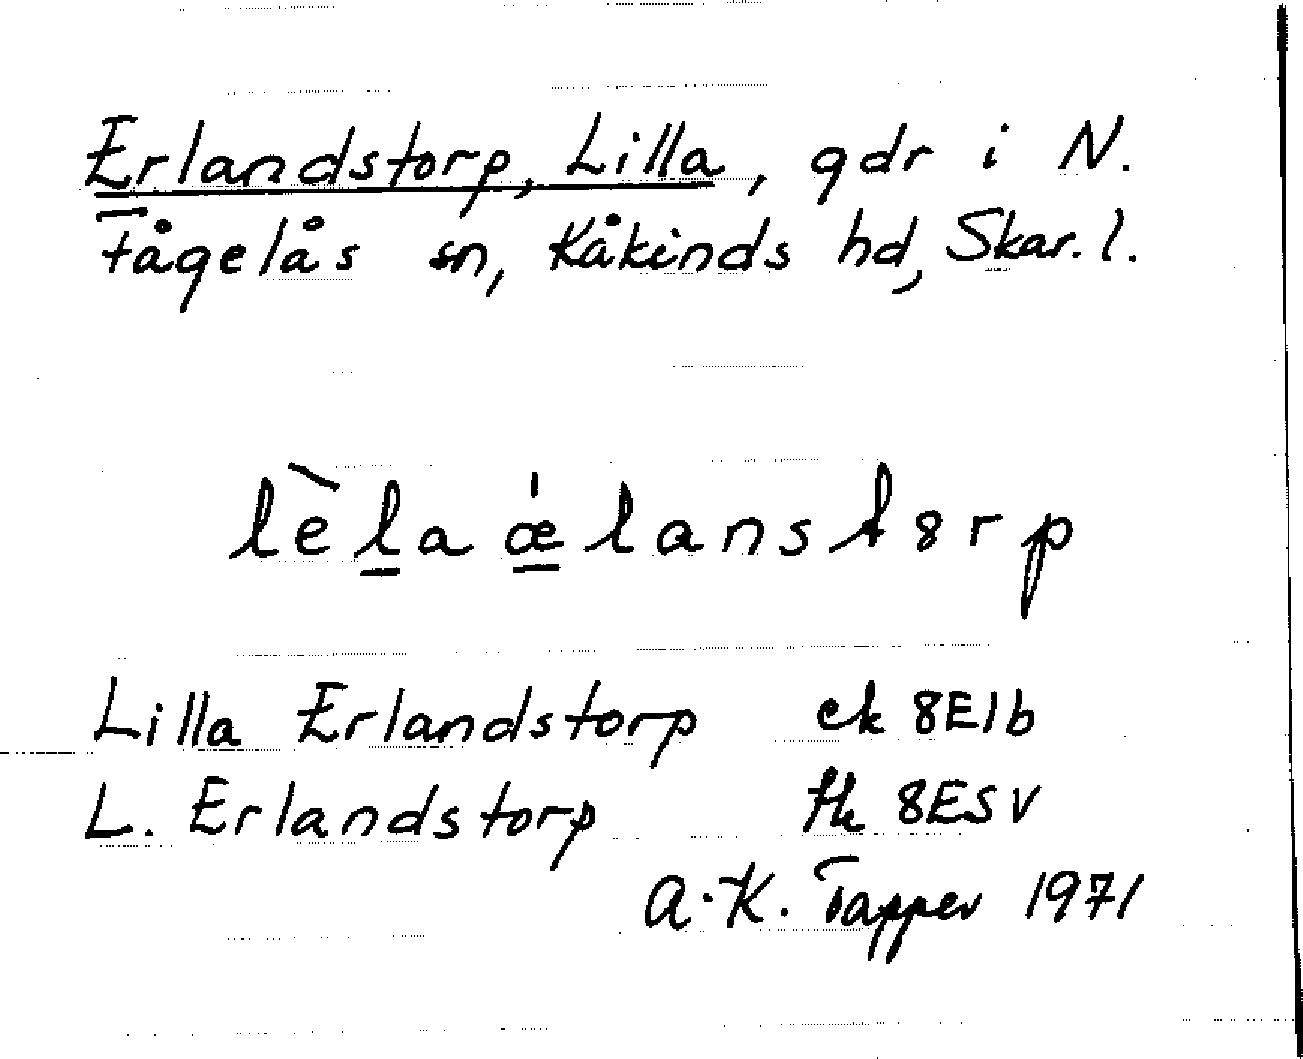 Erlandstorp, Lilla, gdr i N.
Fågelås sn, Kåkinds hd, Skar. l.
lèla ǽlanst8rp
Lilla Erlandstorp ek 8E1b
L. Erlandstorp tk 8ESV
A-K. Tapper 1971